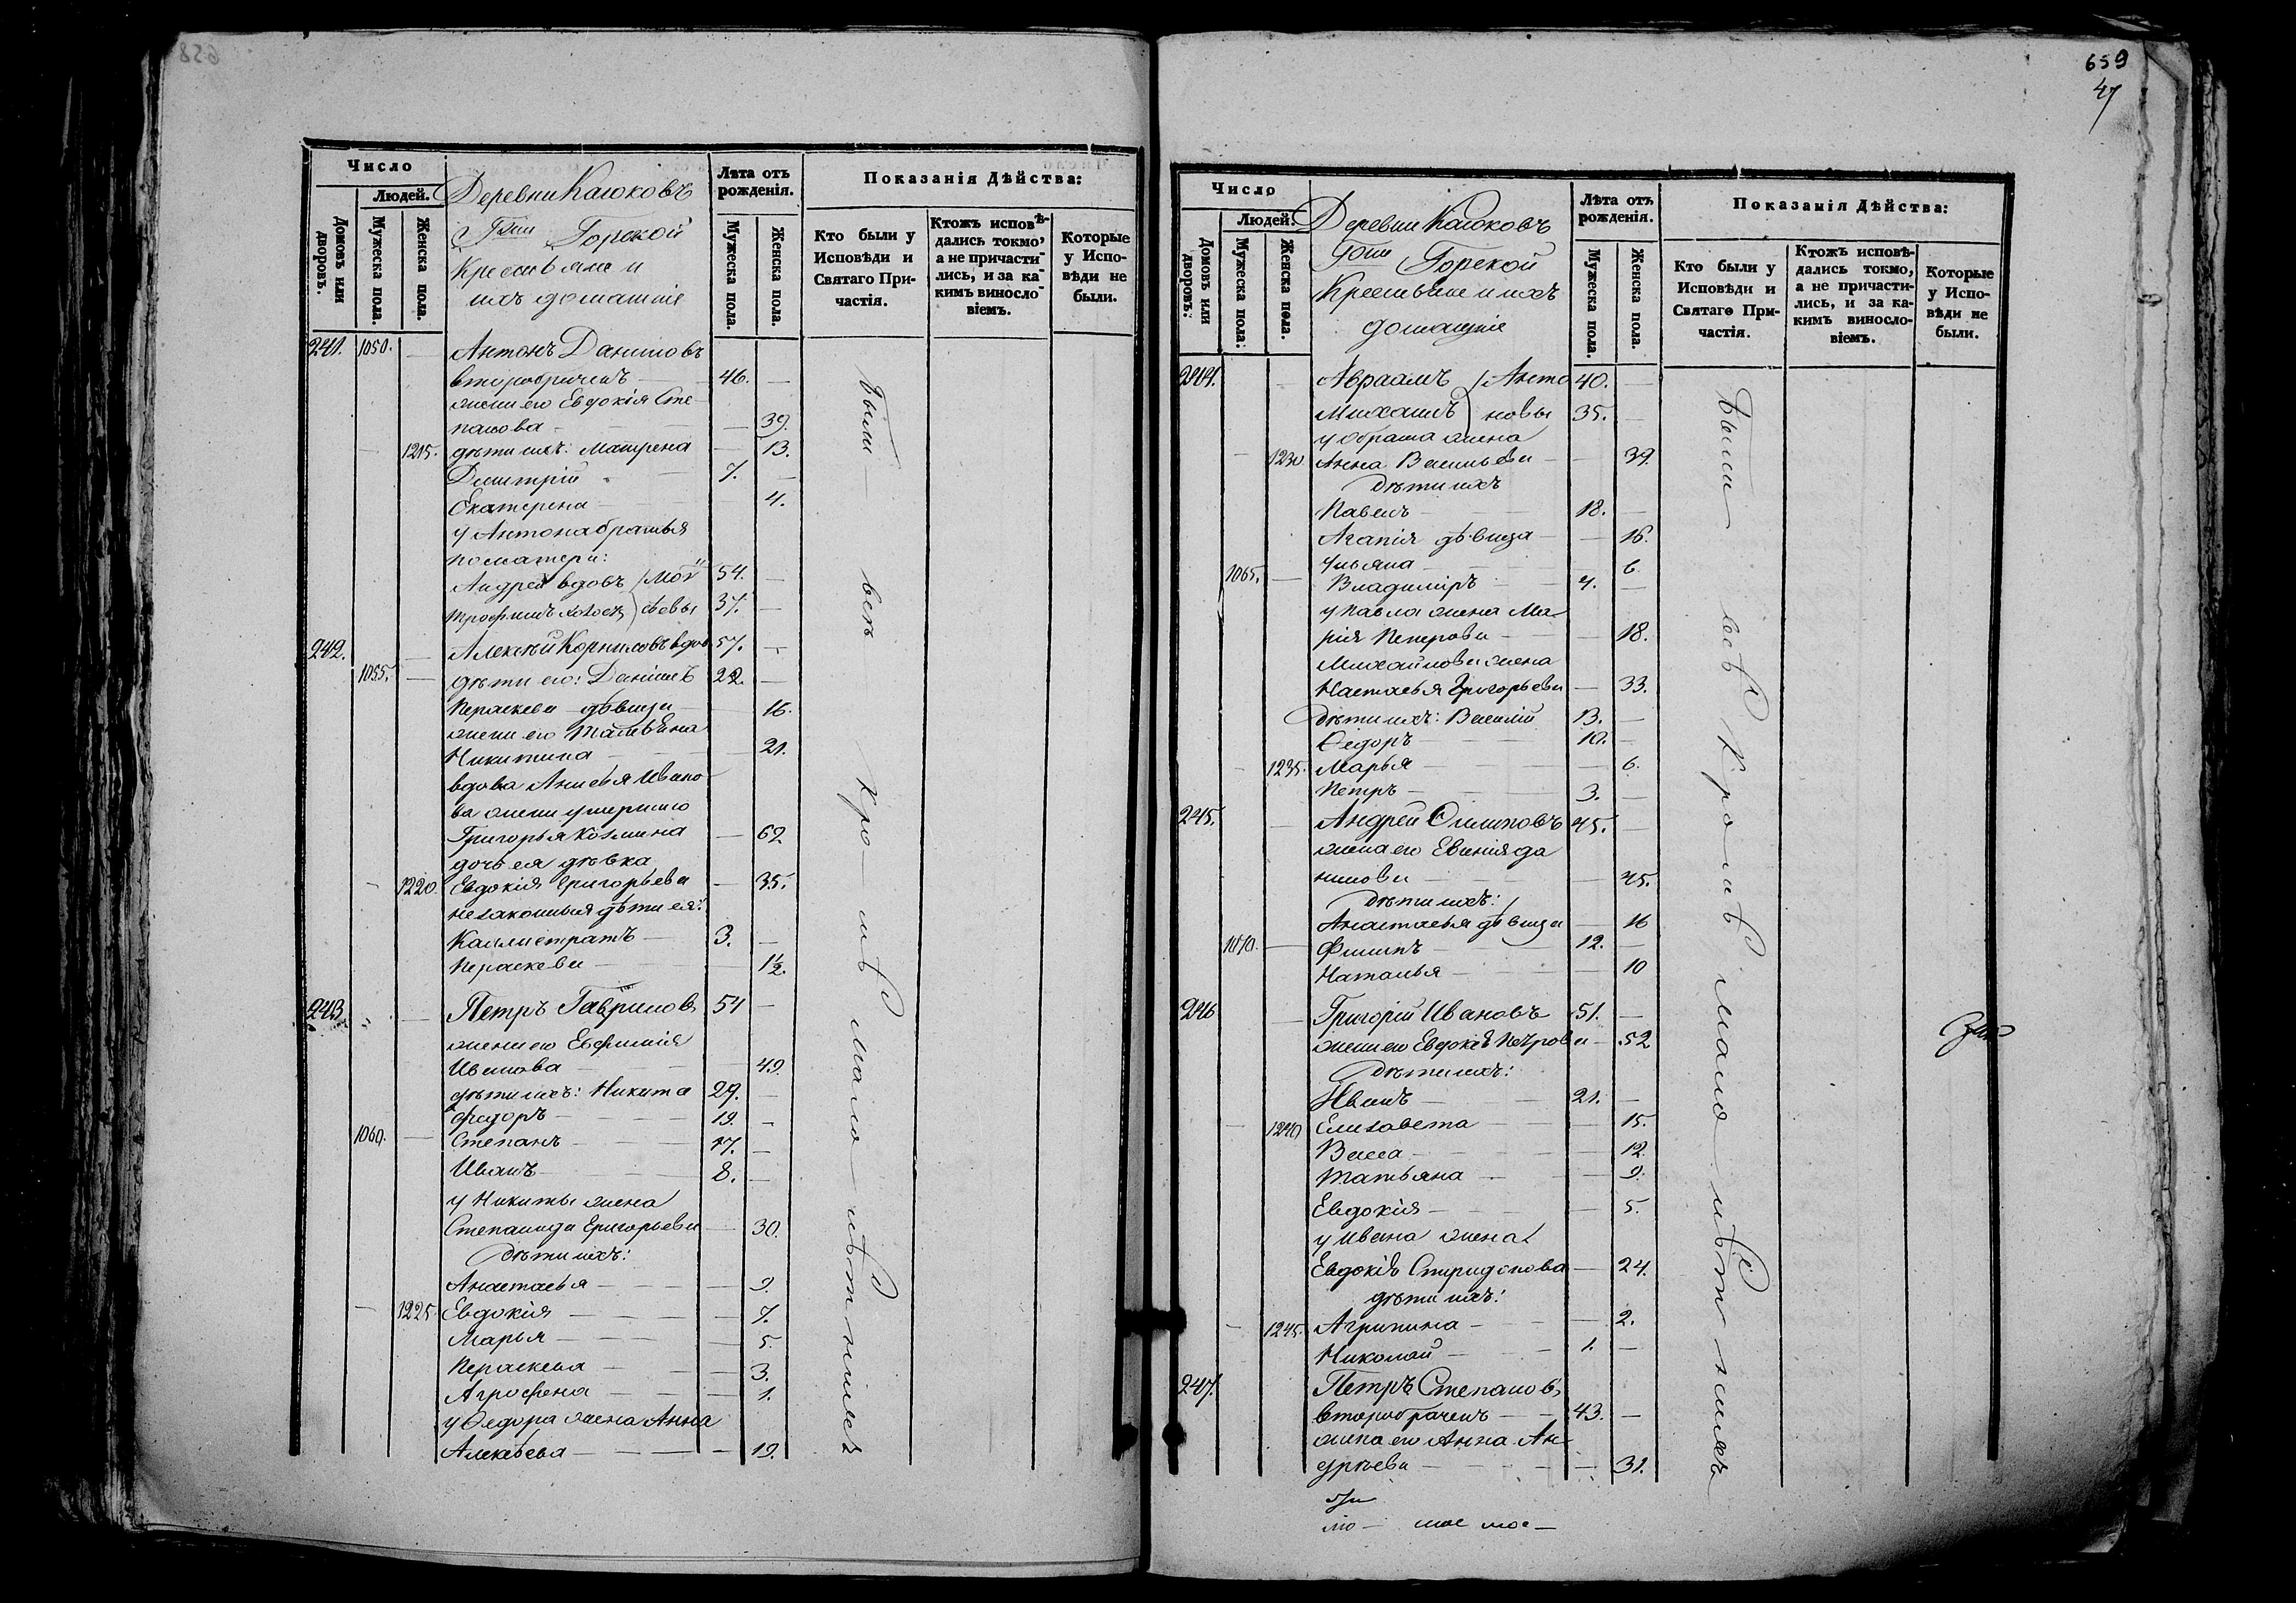 658
Число
Людей.
Домовъ или дворовъ.
Мужеска пола.
Женска пола.
Деревни Клюковъ
Гжи Горской
Крестьяне и
ихъ домашнiе
Лѣта отъ рожденiя.
Мужеска пола.
Женска пола.
Показанiя Дѣйства:
Кто были у Исповѣди и Святаго Причастiя.
Ктожъ исповѣдались токмо, а не причастились, и за какимъ винословiемъ.
Которые у Исповѣди не были.
241. 1050. — Антонъ Даниловъ
второбраченъ — 46. —
жена его Евдокiя Сте-
панова — — 39.
— 1215. дѣти ихъ: Матрена — 13.
Димитрiй 7. —
Екатерина — 4.
у Антона братья
по матери:
Андрей вдовъ 54. —
Трофимъ холос 37. —
242. — Алексѣй Корниловъ вдов 57. —
1055. — дѣти его: Данiилъ 22. —
Пераскева дѣвица — 16.
жена его Татьяна
Никитина — 21.
вдова Анисья Ивано
ва жена умершаго
Григорья Козмина — 62
дочь ея дѣвка
— 1220. Евдокiя Григорьева — 35.
незаконныя дѣти ея:
Каллистратъ — 3. —
Пераскева — — 1½.
243. — Петръ Гавриловъ 54 —
жена его Евфимiя
Иванова — 49.
дѣти ихъ: Никита 29. —
Федоръ — 19. —
1060. — Степанъ — 17. —
Иванъ — 8. —
у Никиты жена
Степанида Григорьева — 30.
Дѣти ихъ:
Анастасья — — 9.
— 1225. Евдокiя — — 7.
Марья — — 5.
Пераскева — — 3.
Агрофена — — 1.
у Ѳедора жена Анна
Алексѣева — — 19.
Были — всѣ кро-мѣ мало-лѣтнихъ
659
47
Число
Людей.
Домовъ или дворовъ.
Мужеска пола.
Женска пола.
Деревни Клюковъ
Гжи Горской
Крестьяне и ихъ
домащнiе
Лѣта отъ рожденiя.
Мужеска пола.
Женска пола.
Показанiя Дѣйства:
Кто были у Исповѣди и Святаго Причастiя.
Ктожъ исповѣдались токмо, а не причастились, и за какимъ винословiемъ.
Которые у Исповѣди не были.
244. — Авраамъ Анто 40. —
Михаилъ новы 35. —
у Абрама жена
— 1230. Анна Васильева — 39.
Дѣти ихъ
Павелъ — 18. —
Агапiя дѣвица — 16.
Ульяна — 6
1065. — Владимiръ — 4. —
у Павла жена Ма-
рiя Петрова — 18.
Михайлова жена
Настасья Григорьева — 33.
Дѣти ихъ: Василiй 13. —
Ѳедоръ — 10. —
— 1235. Марья — — 6.
Петръ — 3. —
245. — Андрей Филиповъ 45. —
жена его Евгенiя Да
нилова — 45.
Дѣти ихъ:
Анастасья дѣвица — 16
1070. — Филипъ — 12. —
Наталья — — 10
246 — Григорiй Ивановъ 51. —
жена его Евдокiя Петрова — 52
Дѣти ихъ:
Иванъ — 21. —
— 1240 Елизавета — — 15.
Васса — — 12
Татьяна — — 9.
Евдокiя — — 5.
у Ивана жена
Евдокiя Спиридонова — 24.
дѣти ихъ:
— 1245. Агрипина — — 2.
Николай — 1. —
247. Петръ Степановъ
второбраченъ — 43. —
жена его Анна Ан-
дрѣева — — 31.
Были всѣ кромѣ мало лѣтнихъ